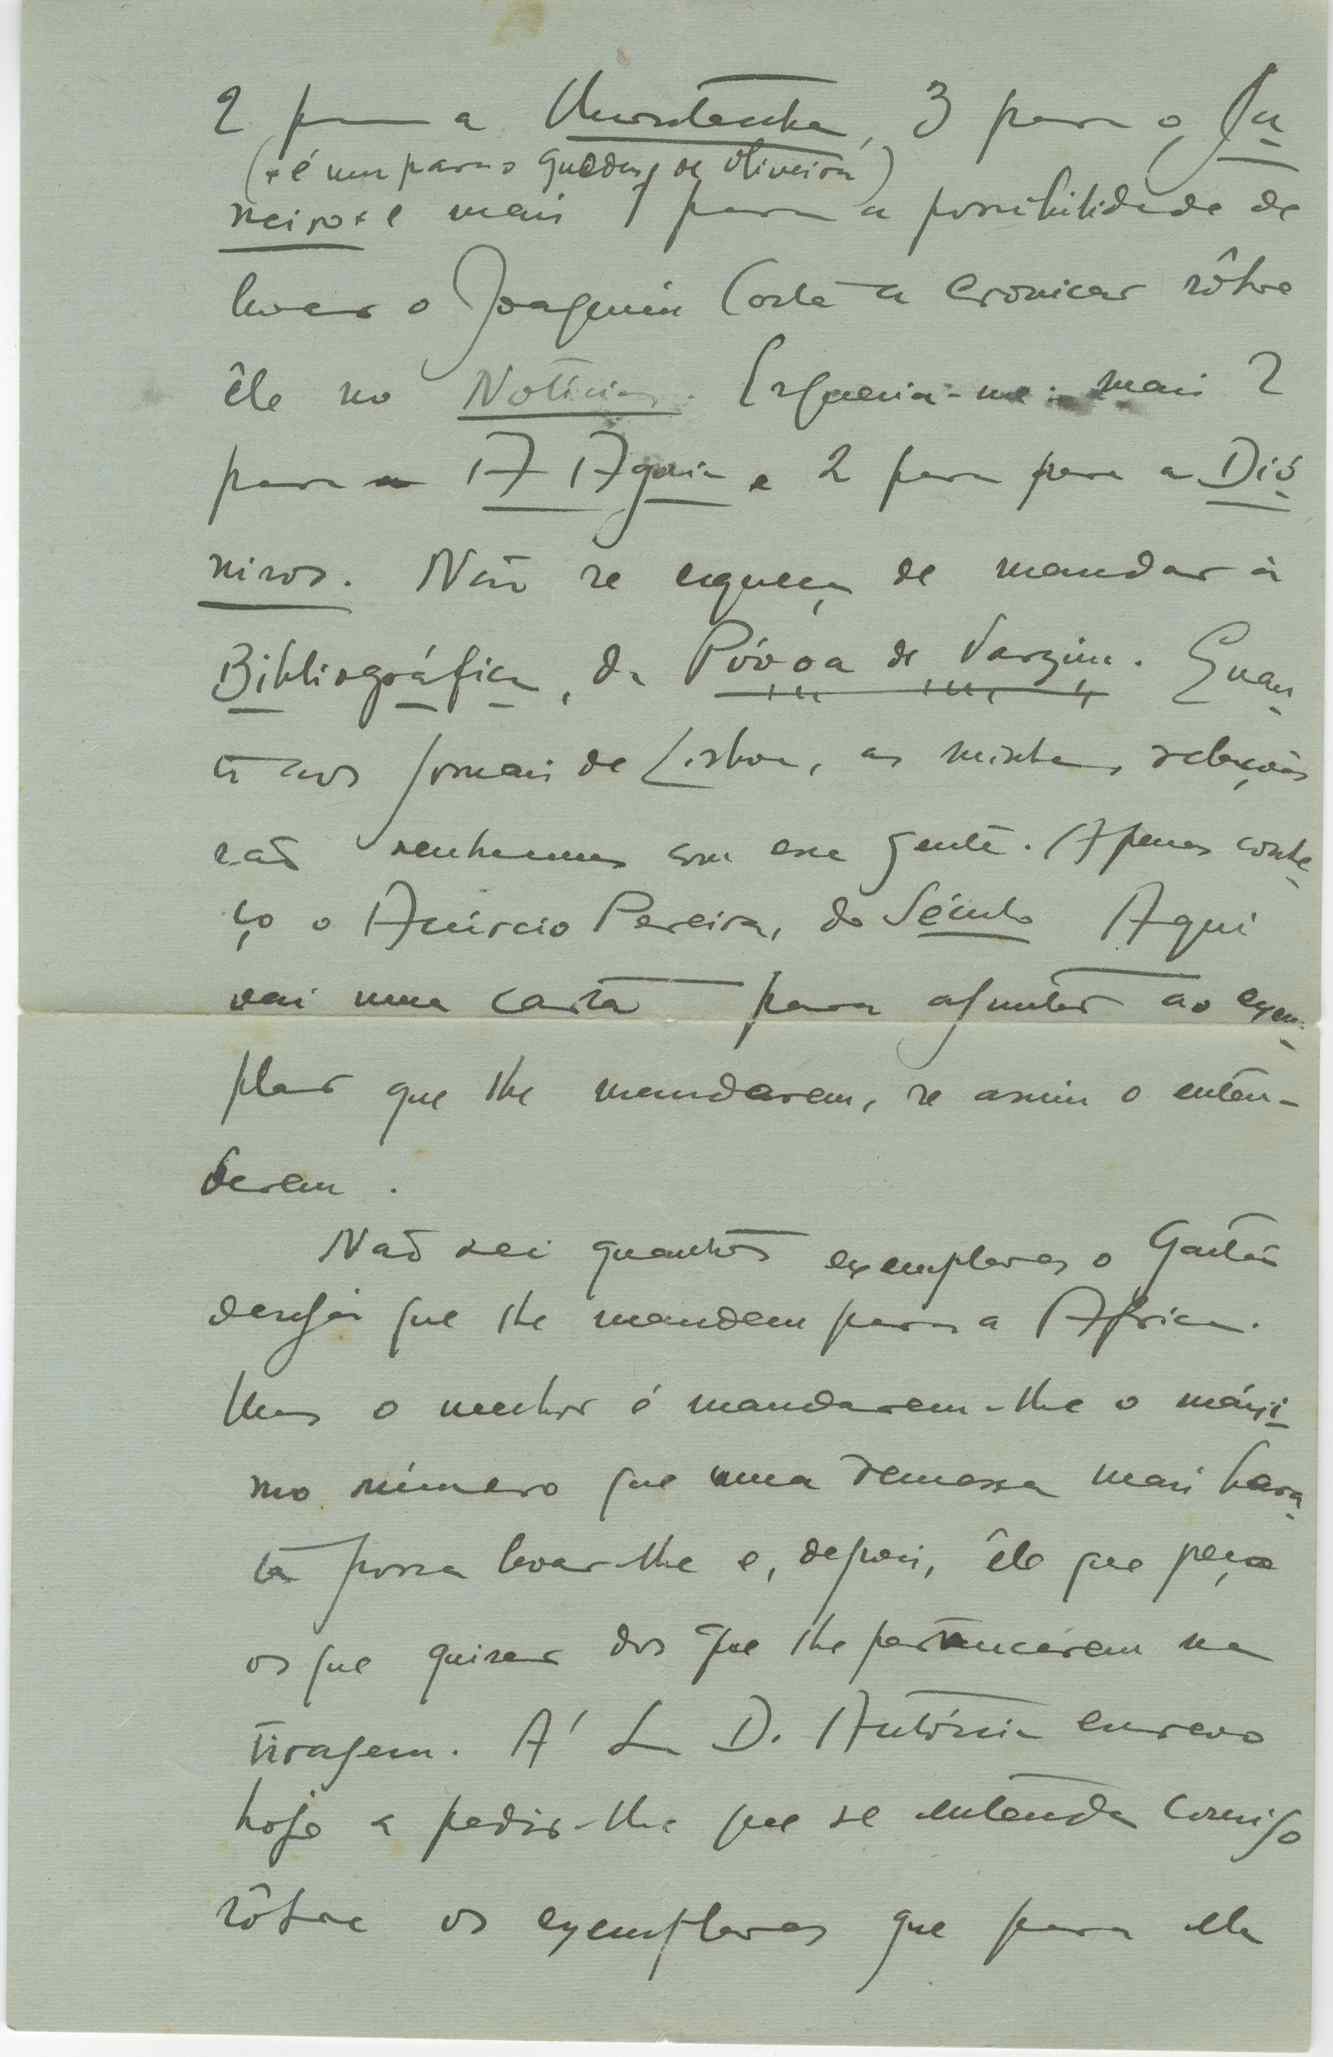 2 para a Montanha, 3 para o Ja
(* é um para o Guedes de Oliveira)
neiro * e mais 1 para a possibilidade de
levar o Joaquim Costa a cronicar sôbre
êle no Notícias. Esquecia-me: mais 2
para A Aguia e 2 para para a Dió
nisos. Não se esqueça de mandar à
Bibliográfica, da Póvoa de Varzim. Quan
to aos jornais de Lisboa, as minhas relações
são nenhumas com essa gente. Apenas conhe
ço o Acúrcio Pereira, do Século Aqui
vai uma carta para ajuntar ao exem
plar que lhe mandarem, se assim o enten-
derem.
Não sei quantos exemplares o Gastão
deseja que lhe mandem para a Africa.
Mas o melhor é mandarem-lhe o máxi
mo número que uma remessa mais bara
ta possa levar-lhe e, depois, êle que peça
os que quiser dos que lhe pertencerem na
tiragem. Á Sra D. Antónia escrevo
hoje a pedir-lhe que se entenda comigo
sôbre os exemplares que para ela